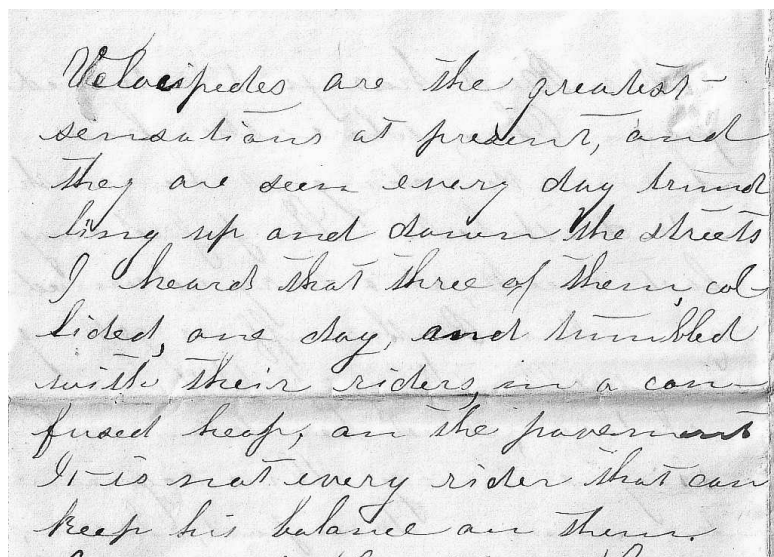 Velocipedes are the greatest
sensations at present, and
they are seen every day trund
ling up and down the streets
I heard that three of them, col-
lided, one day, and tumbled
with their riders, in a con-
fused heap, on the pavement
It is not every rider that can
keep his balance on them.